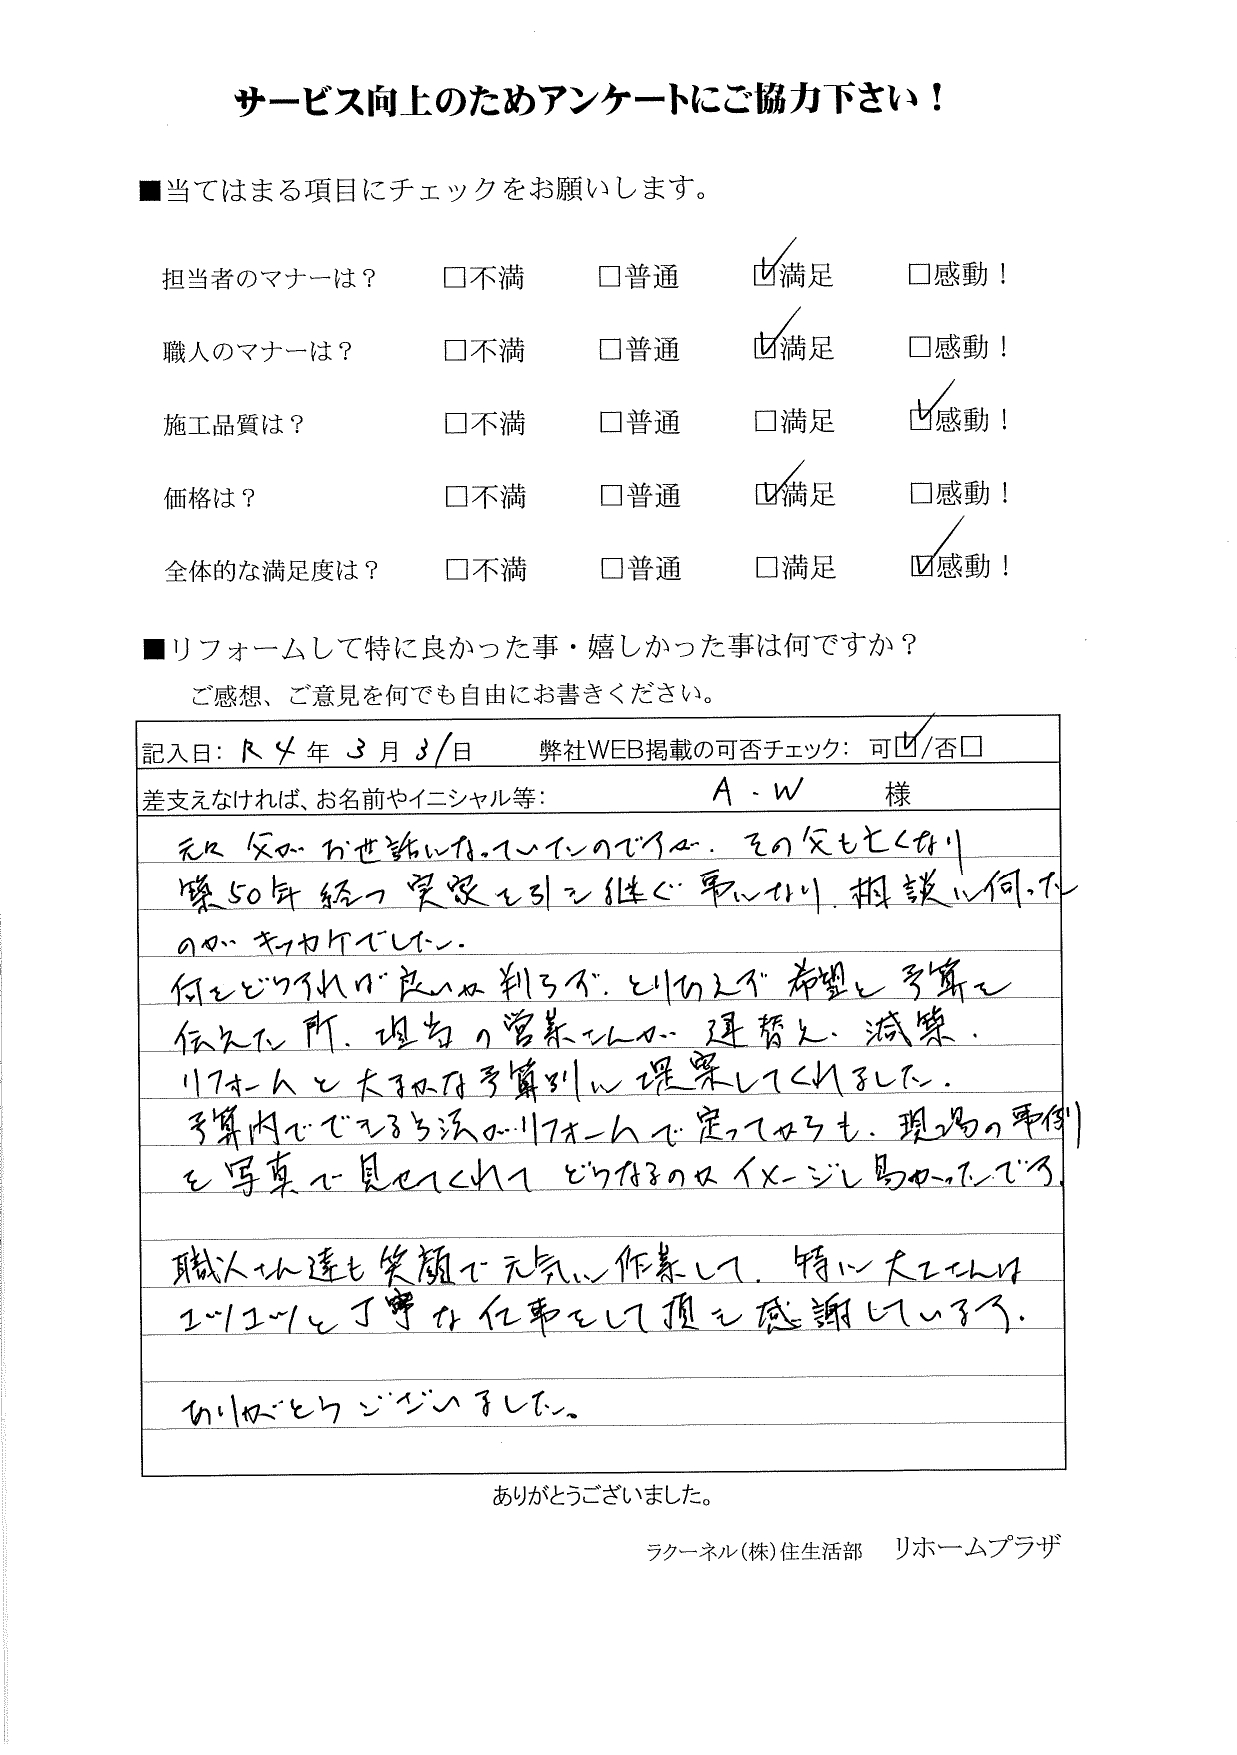 サービス向上のためアンケートにご協力下さい！
■当てはまる項目にチェックをお願いします。
担当者のマナーは？ □不満 □普通 ☑満足 □感動！
職人のマナーは？ □不満 □普通 ☑満足 □感動！
施工品質は？ □不満 □普通 □満足 ☑感動！
価格は？ □不満 □普通 ☑満足 □感動！
全体的な満足度は？ □不満 □普通 □満足 ☑感動！
■リフォームして特に良かった事・嬉しかった事は何ですか？
ご感想、ご意見を何でも自由にお書きください。
記入日： R4年 3月 31日 弊社WEB掲載の可否チェック： 可☑/否□
差支えなければ、お名前やイニシャル等： A・W 様
元々 父が お世話になっていたのですが、その父も亡くなり
築50年経つ 実家を引き継ぐ事になり、相談に伺った
のがキッカケでした。
何をどうすれば良いか判らず、とりあえず希望と予算を
伝えた所、担当の営業さんが 建替え、減築、
リフォームと大まかな予算別に提案してくれました。
予算内でできる方法がリフォームで定ってからも、現場の事例
を写真で見せてくれて どうなるのかイメージし易かったです。
職人さん達も笑顔で元気に作業して、特に大工さんは
コツコツと丁寧な仕事をして頂き感謝しています。
ありがとうございました。
ありがとうございました。
ラクーネル（株）住生活部 リホームプラザ